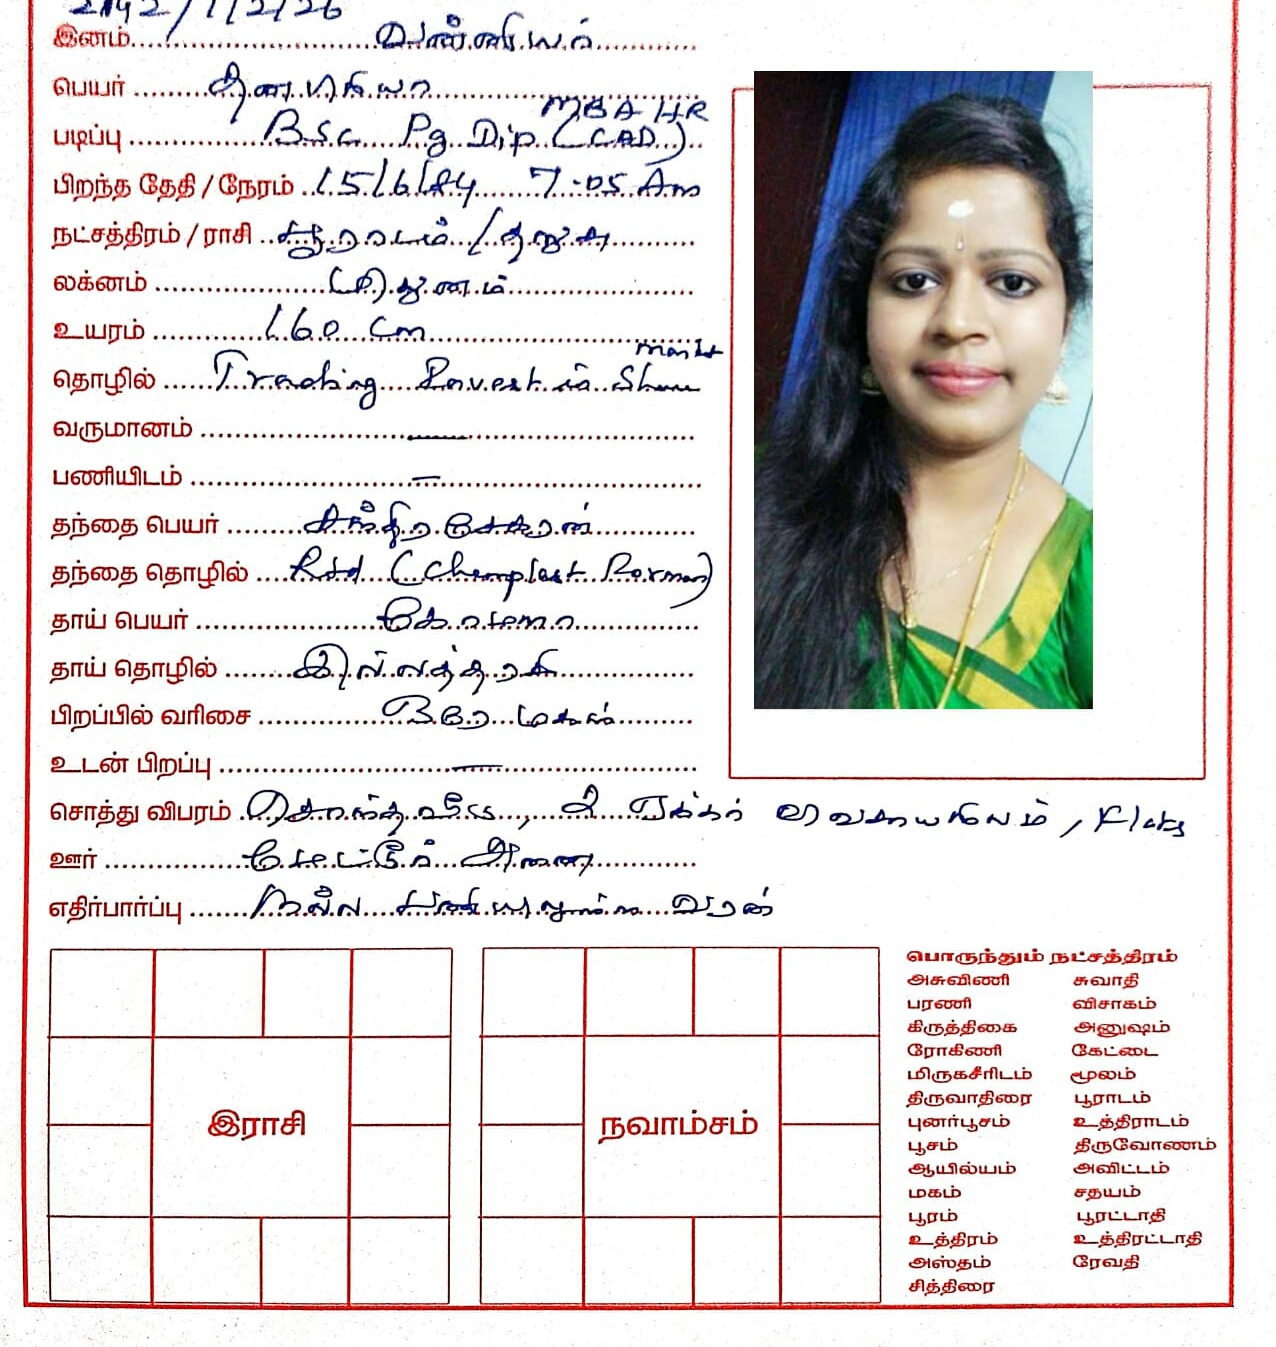 2142/1/2/26
இனம் வன்னியர்
பெயர்
MBA HR
படிப்பு B.Sc. Pg Dip (CAD)
பிறந்த தேதி / நேரம் 15/6/84 7.05 Am
நட்சத்திரம் / ராசி பூராடம் / தனுசு
லக்னம் மிதுனம்
உயரம் 160 cm
தொழில் Trading Invest in Share Market
வருமானம் —
பணியிடம் —
தந்தை பெயர் சந்திரசேகரன்
தந்தை தொழில் Rtd (Chemplast
தாய் பெயர்
தாய் தொழில் இல்லத்தரசி
பிறப்பில் வரிசை ஒரே மகள்
உடன் பிறப்பு —
சொத்து விபரம் சொந்தவீடு, 2 ஏக்கர் விவசாயநிலம்,
ஊர் மேட்டூர் அணை
எதிர்பார்ப்பு நல்ல வரன்
இராசி
நவாம்சம்
பொருந்தும் நட்சத்திரம்
அசுவிணி சுவாதி
பரணி விசாகம்
கிருத்திகை அனுஷம்
ரோகிணி கேட்டை
மிருகசீரிடம் மூலம்
திருவாதிரை பூராடம்
புனர்பூசம் உத்திராடம்
பூசம் திருவோணம்
ஆயில்யம் அவிட்டம்
மகம் சதயம்
பூரம் பூரட்டாதி
உத்திரம் உத்திரட்டாதி
அஸ்தம் ரேவதி
சித்திரை